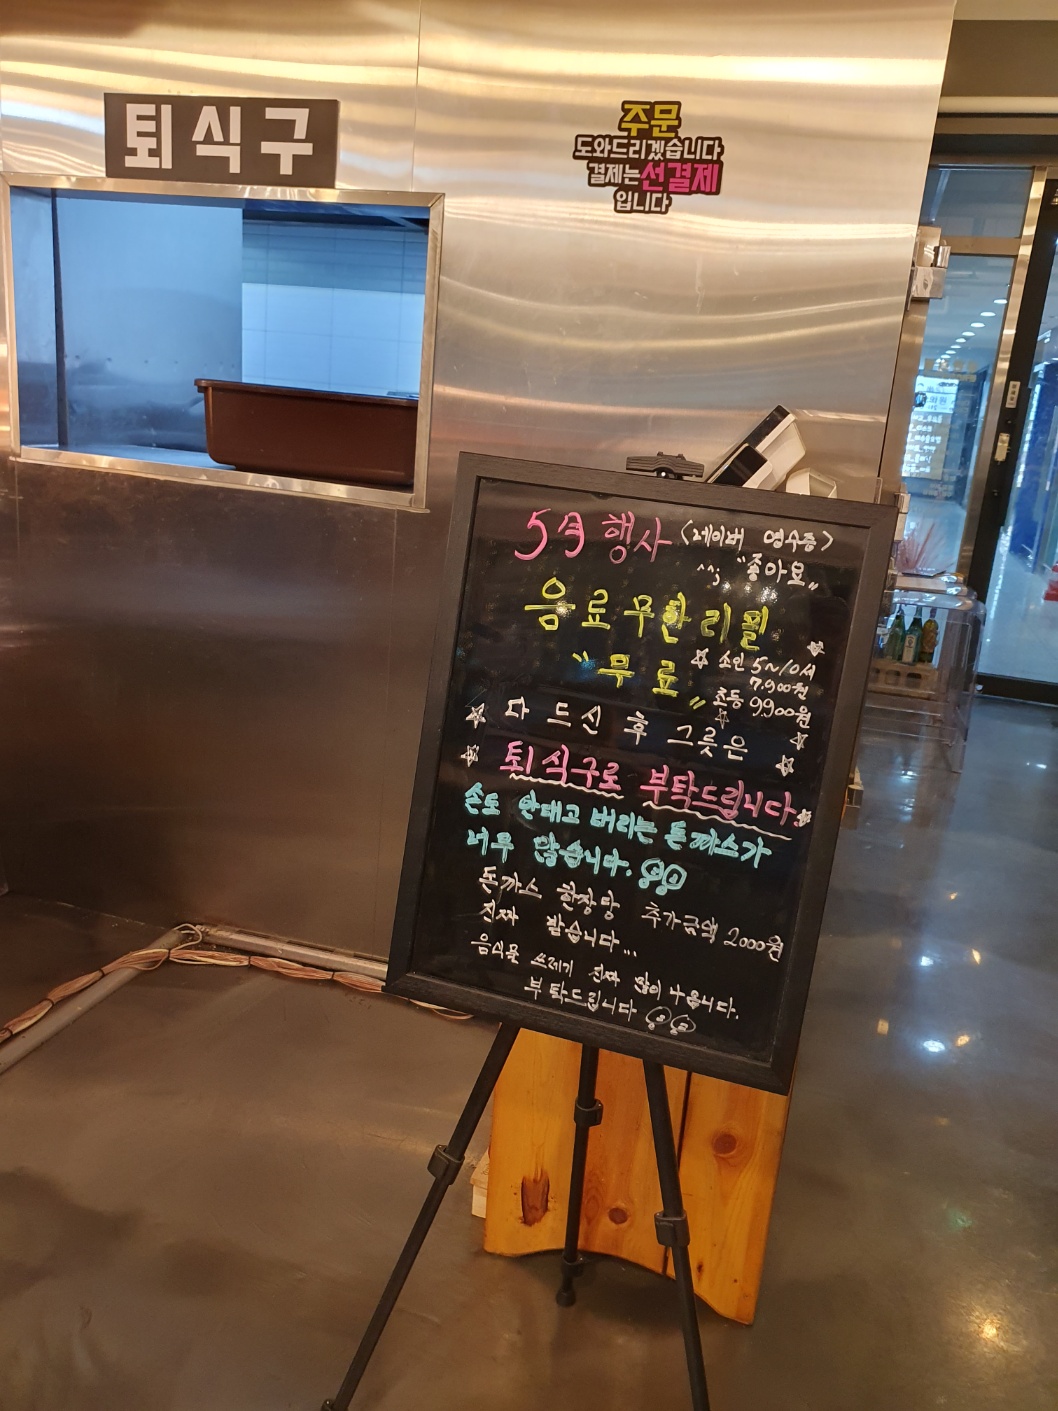 퇴식구
주문
도와드리겠습니다
결제는 선결제
입니다
5월 행사 <네이버 영수증>
^^; "좋아요"
음료무한리필
"무료"
☆ 소인 5~10세
7,900원
초등 9900원
☆ 다 드신 후 그릇은 ☆
☆ 퇴식구로 부탁드립니다 ☆
손도 안대고 버리는 돈까스가
너무 많습니다.
돈까스 한장당 추가금액 2000원
진짜 받습니다...
음식물 쓰레기 진짜 많이 나옵니다.
부탁드립니다